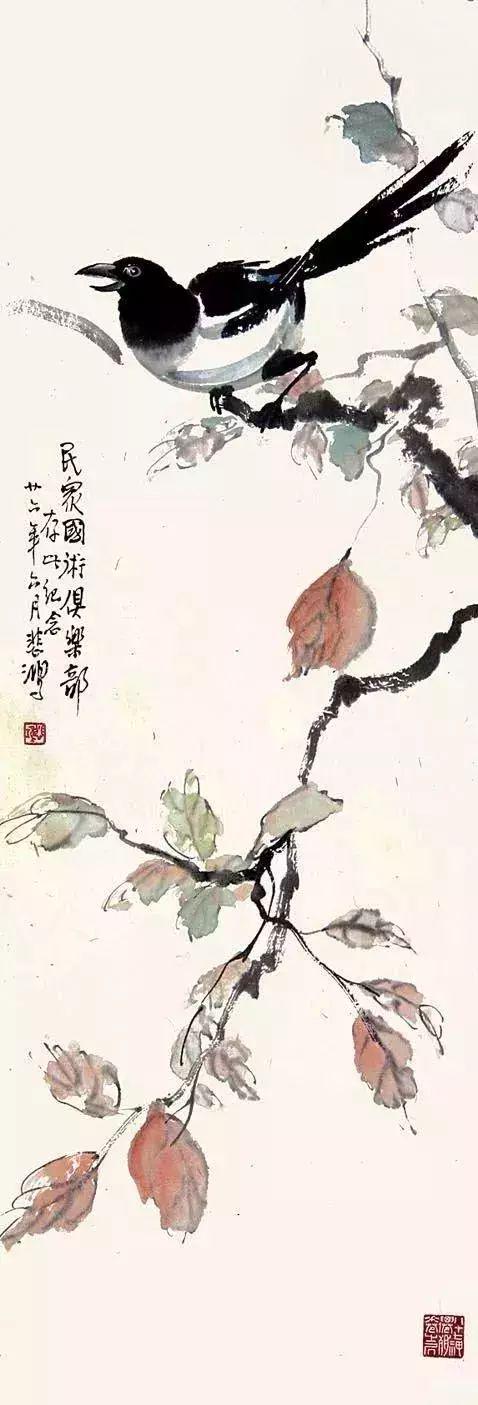 民衆國術俱樂部
存此紀念
廿六年六月悲鴻